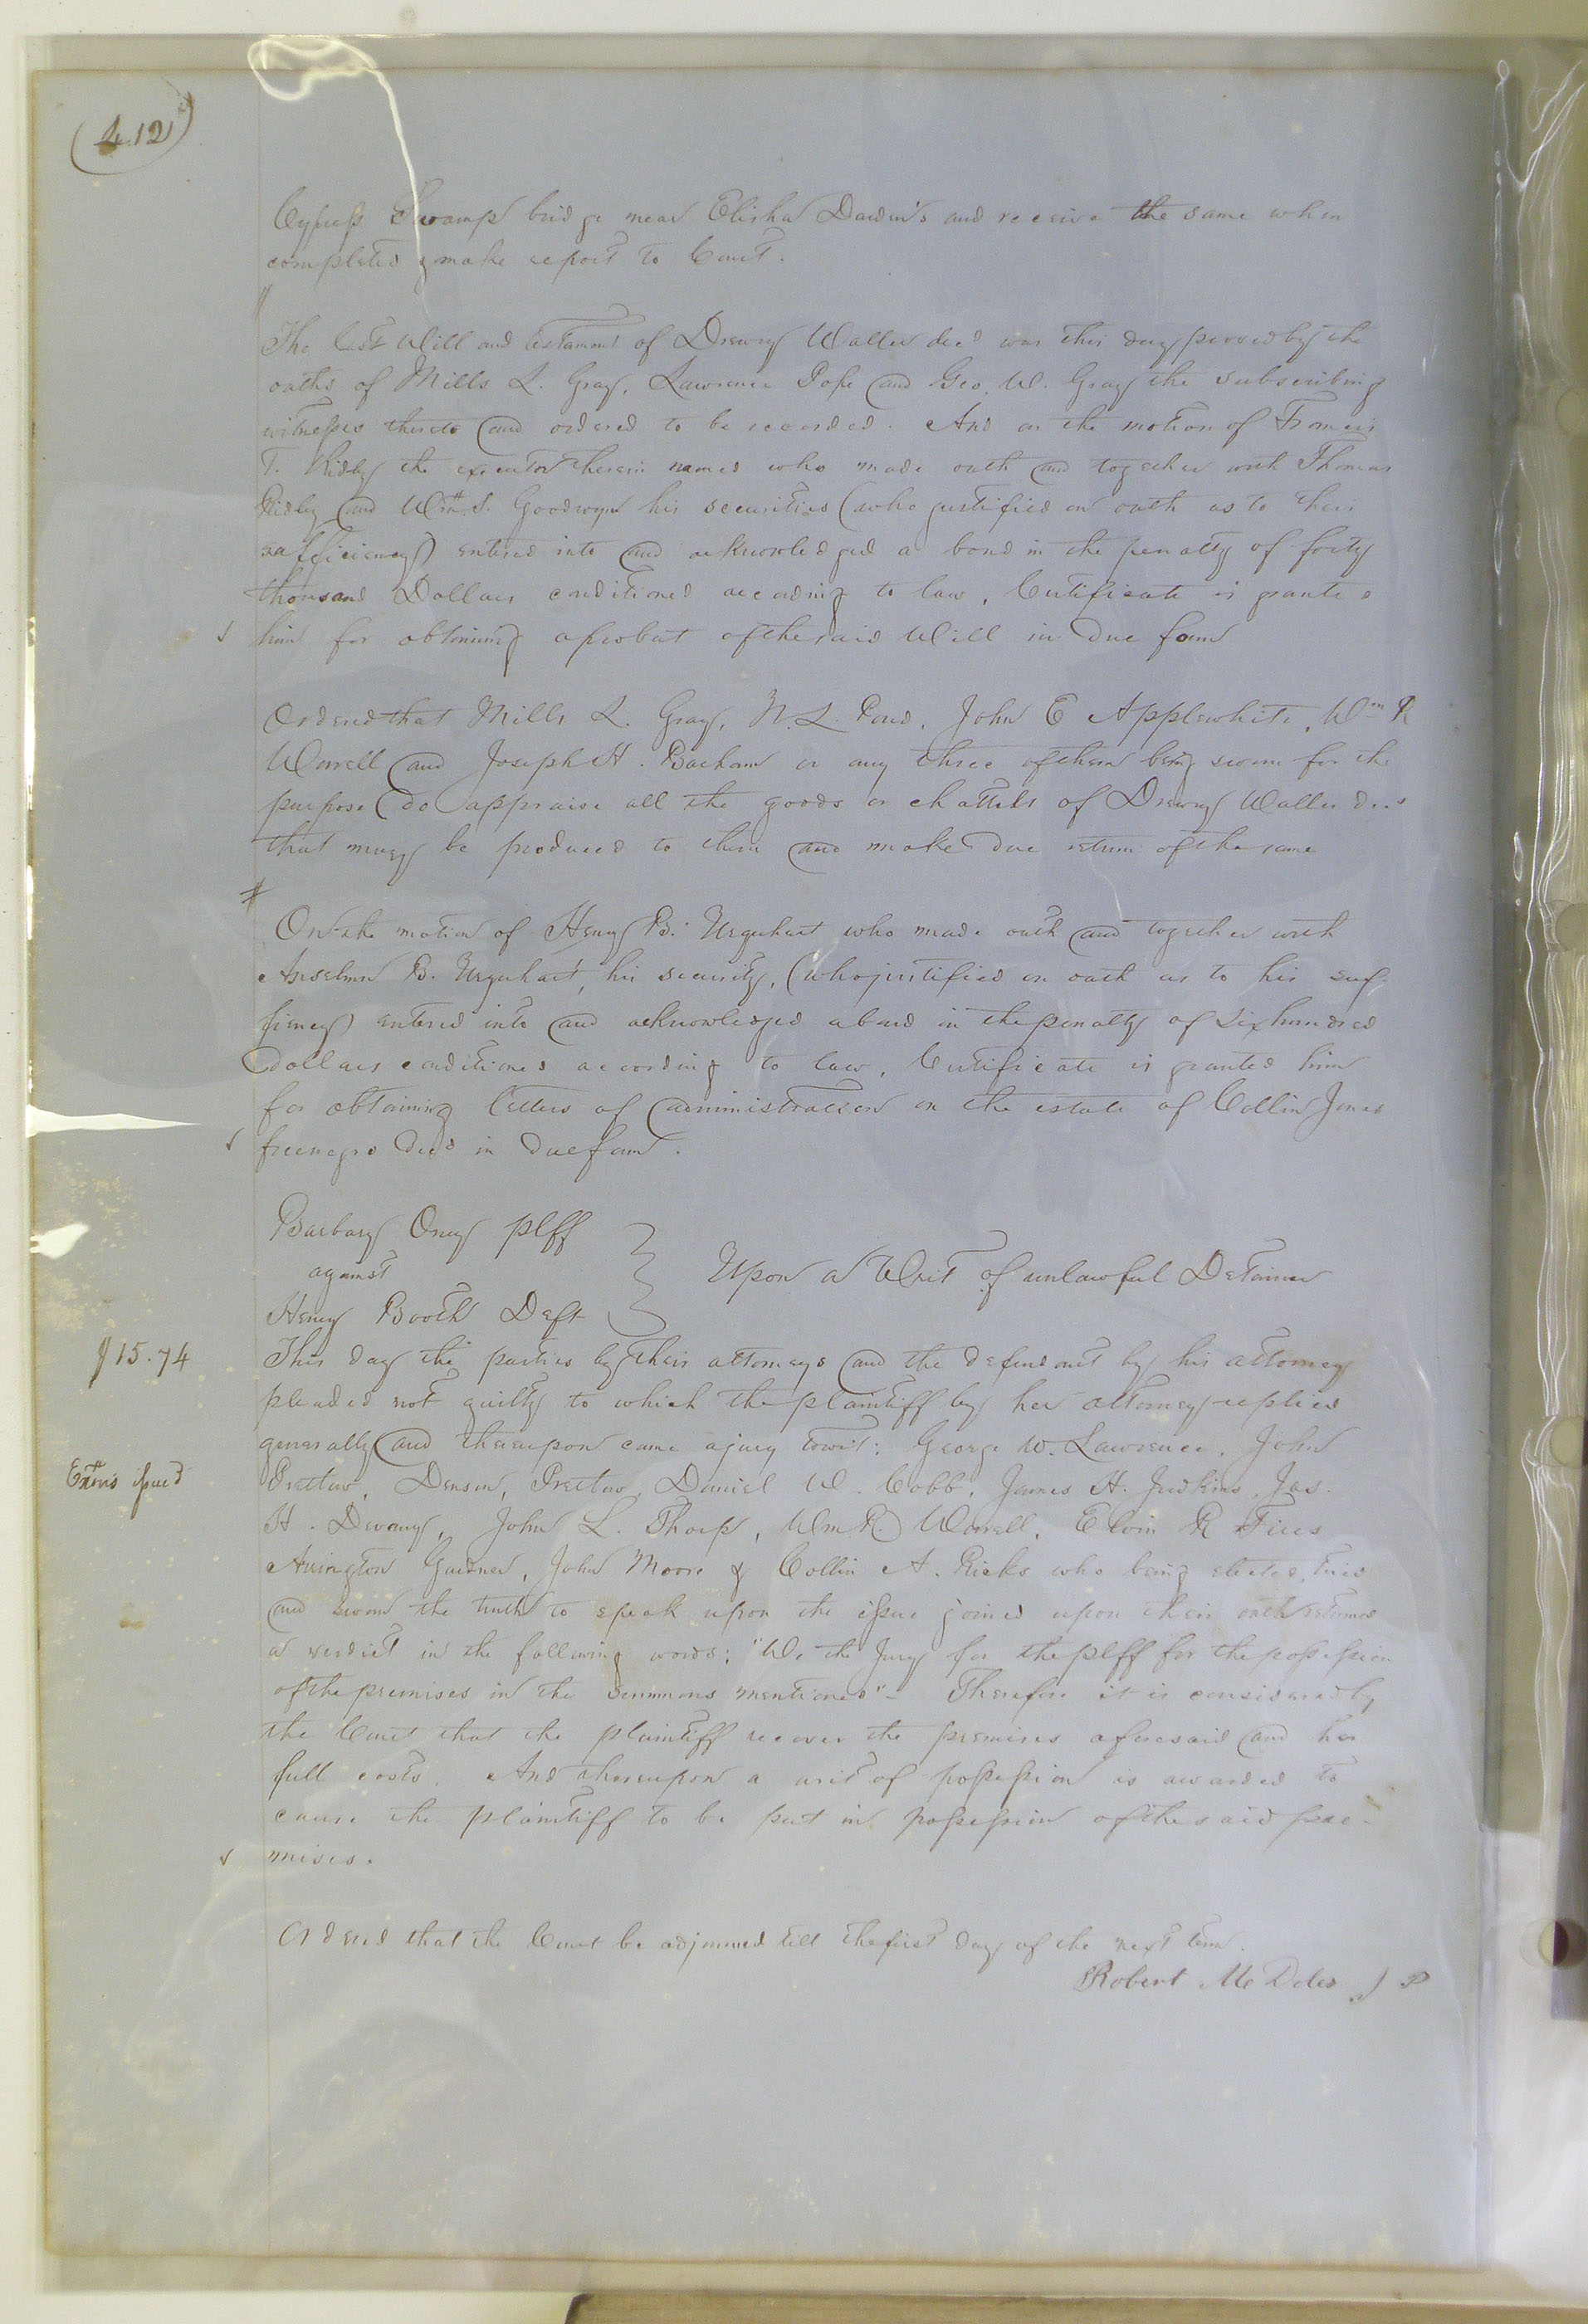 (412)
Cypress Swamp bridge near Elisha Darden's and receive the same when
completed & make report to Court.
The last Will and testament of Drewry Waller decd was this day proved by the
oaths of Mills L. Gray, Lawrence Pope and Geo. W. Gray the subscribing
witnesses thereto and ordered to be recorded. And on the motion of Francis
T. Ridley the executor therein named who made oath and together with Thomas
Ridley and Wm S. Goodwyn his securities (who justified on oath as to their
sufficiency) entered into and acknowledged a bond in the penalty of forty
thousand Dollars conditioned according to law, Certificate is granted
him for obtaining a probat of the said Will in due form
Ordered that Mills L. Gray, N. L. Pond, John E Applewhite, Wm R
Worrell and Joseph H. Barham or any three of them being sworn for the
purpose do appraise all the goods or chattels of Drewry Waller decd
that may be produced to them and make due return of the same
On the motion of Henry B. Urquhart who made oath and together with
Anselm B. Urquhart, his security, (who justified on oath as to his suf
ficiency) entered into and acknowledged a bond in the penalty of six hundred
Dollars conditioned according to law, Certificate is granted him
for obtaining letters of administration on the estate of Collin Jones
free negro decd in due form.
Barbary Oney plff
against
Henry Booth Deft
Upon a Writ of unlawful Detainer
$15.74
This day the parties by their attorneys and the defendant by his attorney
pleaded not guilty to which the plaintiff by her attorney replied
generally and thereupon came a jury towit: George W. Lawrence, John
issued
Pretlow, Denson, Pretlow, Daniel W. Cobb, James H. Judkins, Jas.
H. Devany, John L. Thorp, Wm R. Worrell, Elvin R
Arrington Gardner, John Moore & Collin A. Ricks who being elected, tried
and sworn the truth to speak upon the issue joined upon their oath returned
a verdict in the following words: "We the Jury for the plff for the possession
of the premises in the summons mentioned" - Therefore it is considered by
the Court that the plaintiff recover the premises aforesaid and her
full costs. And thereupon a writ of possession is awarded to
cause the plaintiff to be put in possession of the said pre-
mises.
Ordered that the Court be adjourned till the first day of the next term.
Robert M Doles J P